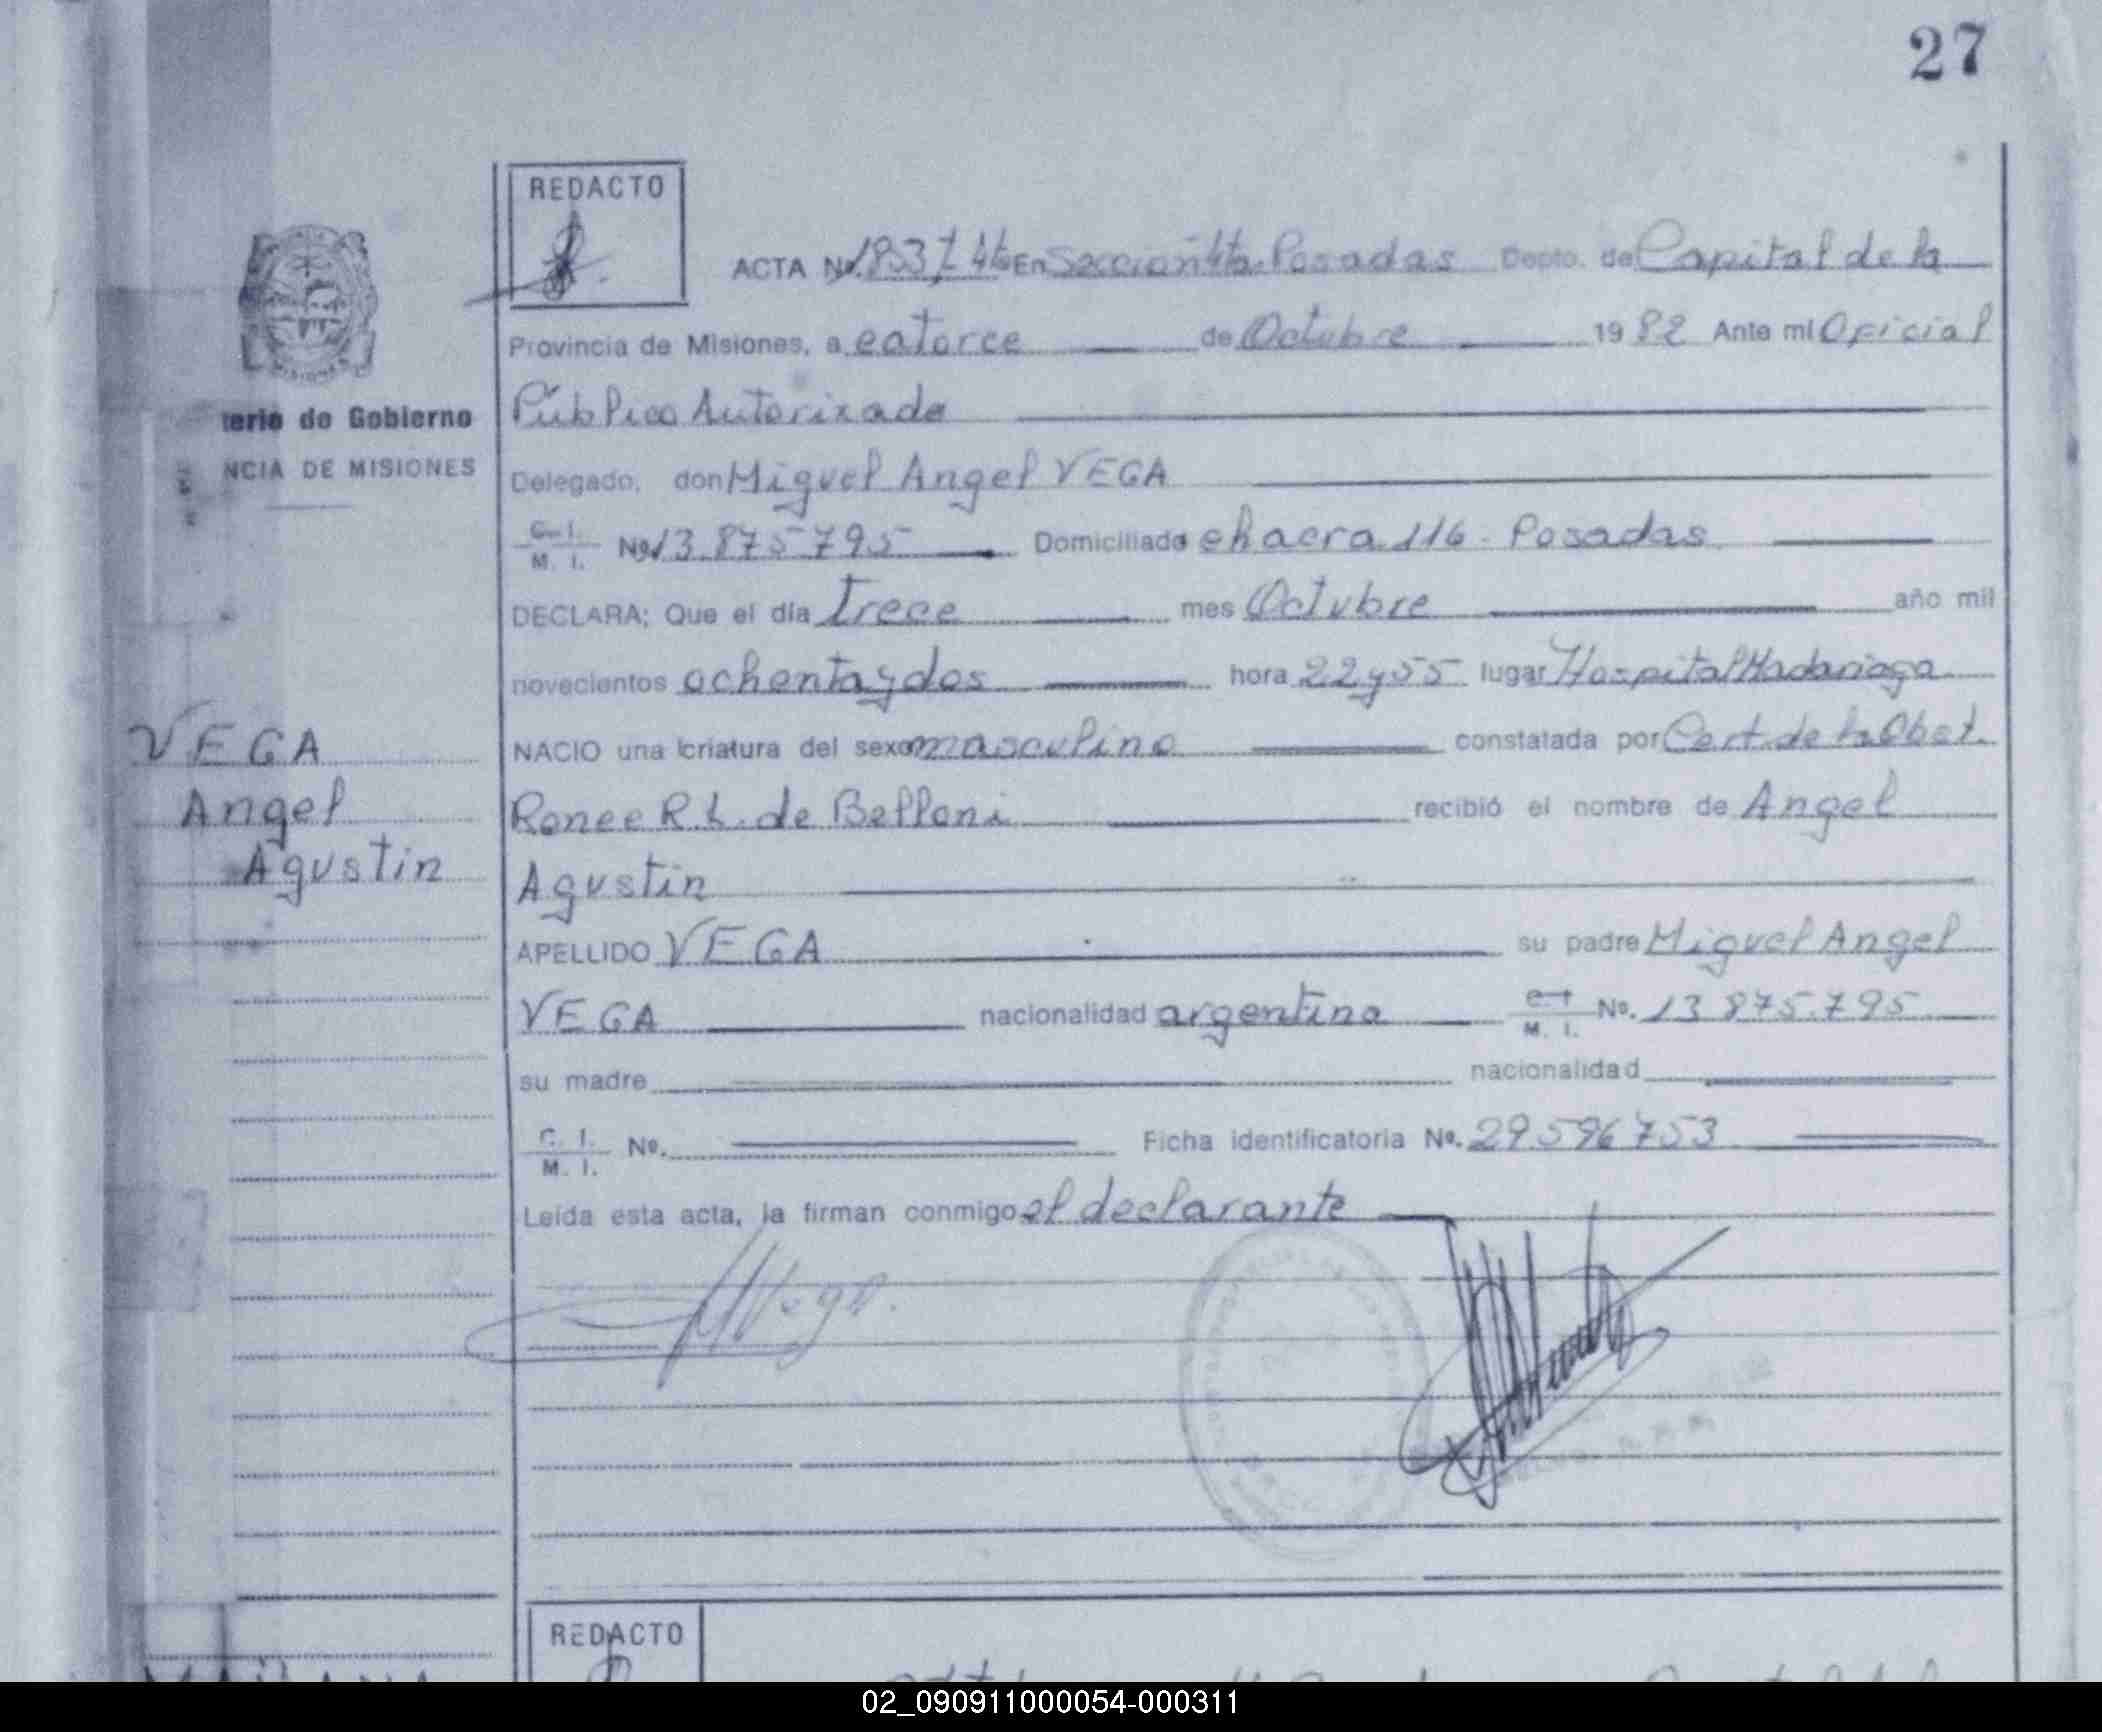 27
REDACTO
ACTA No. 1837 t 4to En Sección 4ta. Posadas Depto. de Capital de la
Provincia de Misiones, a catorce de Octubre 1982 Ante mi Oficial
terio de Gobierno
Público Autorizado
NCIA DE MISIONES
Delegado, don Miguel Angel VEGA
C. I.
M. I. No. 13.875.795 Domiciliado chacra 116 - Posadas
DECLARA; Que el día trece mes Octubre año mil
novecientos ochenta y dos hora 22 y 55 lugar Hospital Madariaga
VEGA
NACIO una criatura del sexo masculino constatada por Cert. de la Obst.
Angel
Renee R. L. de Belloni recibió el nombre de Angel
Agustin
Agustin
APELLIDO VEGA su padre Miguel Angel
VEGA nacionalidad argentina C. I.
M. I. No. 13.875.795
su madre nacionalidad
C. I.
M. I. No. Ficha identificatoria No. 29.596.753
Leída esta acta, la firman conmigo el declarante
MVega.
REDACTO
02_090911000054-000311